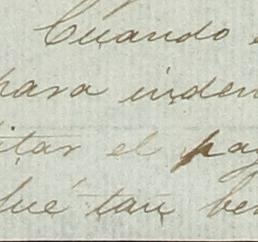 Cuando
para inden
itar el pag
fué tan ben